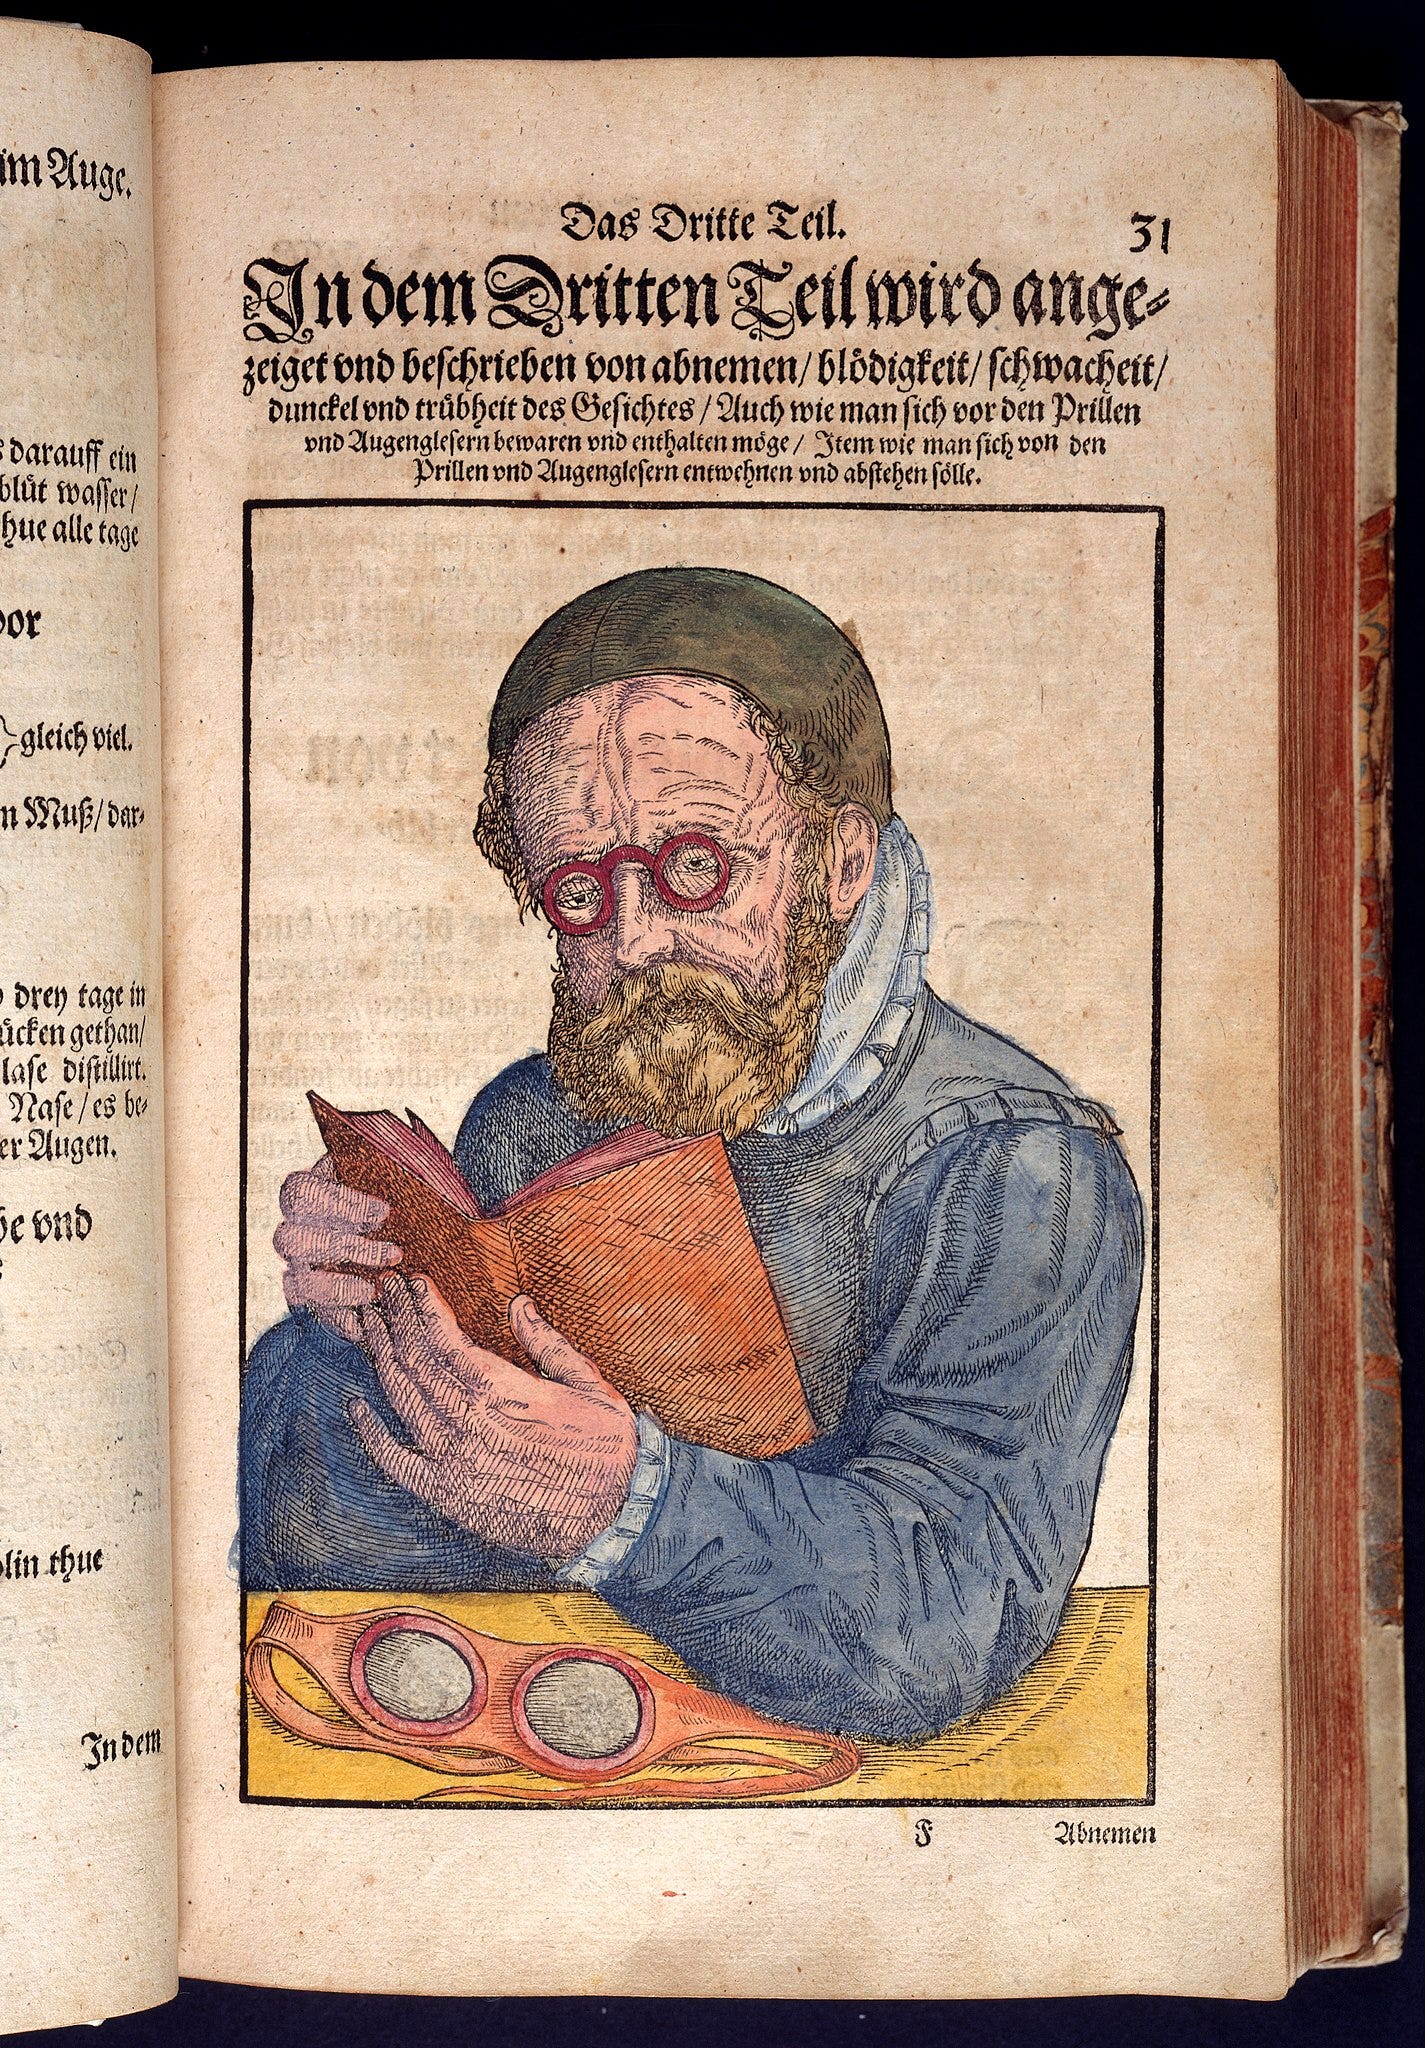 im Auge.
darauff ein
blüt wasser/
thue alle tage
vor
gleich viel.
n Muß/ dar⸗
drey tage in
rücken gethan/
lase distillirt.
Nase/ es be⸗
er Augen.
he vnd
lin thue
In dem
Das Dritte Teil. 31
In dem Dritten Teil wird ange⸗
zeiget vnd beschrieben von abnemen/ blödigkeit/ schwacheit/
dunckel vnd trübheit des Gesichtes/ Auch wie man sich vor den Prillen
vnd Augenglesern bewaren vnd enthalten möge/ Item wie man sich von den
Prillen vnd Augenglesern entwehnen vnd abstehen sölle.
F Abnemen